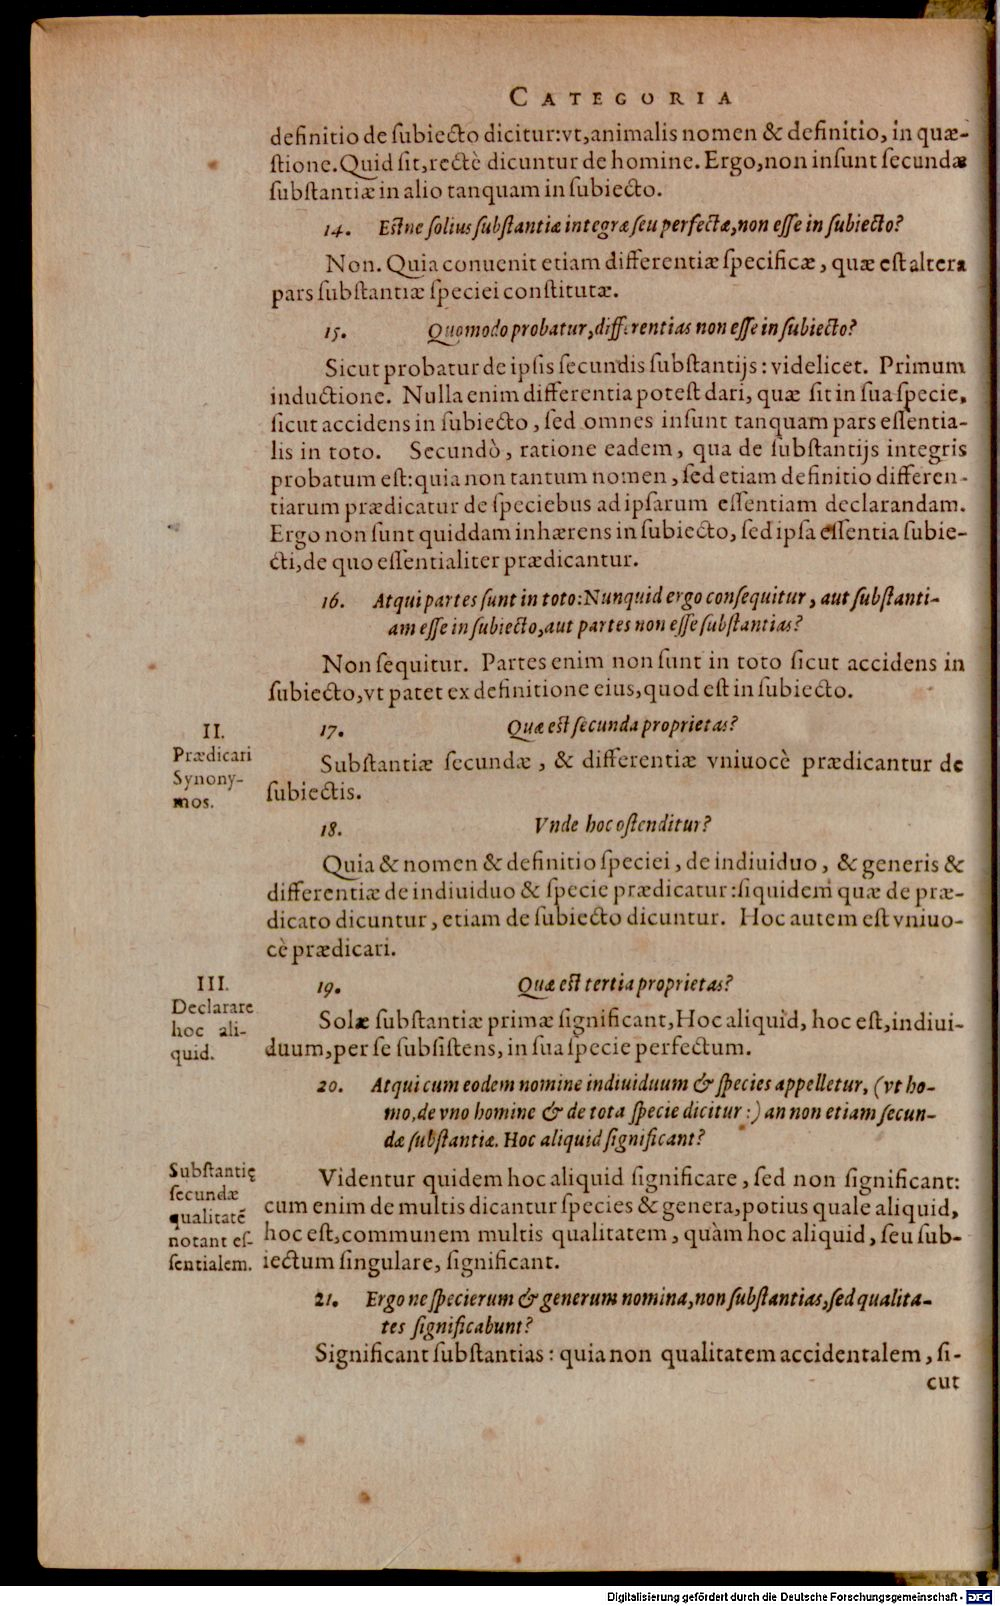 CATEGORIA
definitio de ſubiecto dicitur:vt,animalis nomen & definitio, in quæ-
ſtione.Quid ſit,rectè dicuntur de homine. Ergo,non inſunt ſecundæ
ſubſtantiæ in alio tanquam in ſubiecto.
14. Eſtne ſolius ſubſtantiæ integræ ſeu perfectæ,non eſſe in ſubiecto?
Non. Quia conuenit etiam differentiæ ſpecificæ, quæ eſt altera
pars ſubſtantiæ ſpeciei conſtitutæ.
15. Quomodo probatur,differentias non eſſe in ſubiecto?
Sicut probatur de ipſis ſecundis ſubſtantijs: videlicet. Primum
inductione. Nulla enim differentia poteſt dari, quæ ſit in ſua ſpecie,
ſicut accidens in ſubiecto, ſed omnes inſunt tanquam pars eſſentia-
lis in toto. Secundò, ratione eadem, qua de ſubſtantijs integris
probatum eſt:quia non tantum nomen, ſed etiam definitio differen-
tiarum prædicatur de ſpeciebus ad ipſarum eſſentiam declarandam.
Ergo non ſunt quiddam inhærens in ſubiecto, ſed ipſa eſſentia ſubie-
cti,de quo eſſentialiter prædicantur.
16. Atqui partes ſunt in toto:Nunquid ergo conſequitur, aut ſubſtanti-
am eſſe in ſubiecto,aut partes non eſſe ſubſtantias?
Non ſequitur. Partes enim non ſunt in toto ſicut accidens in
ſubiecto,vt patet ex definitione eius,quod eſt in ſubiecto.
II.
Prædicari
Synony-
mos.
17. Quæ eſt ſecunda proprietas?
Subſtantiæ ſecundæ, & differentiæ vniuocè prædicantur de
ſubiectis.
18. Vnde hoc oſtenditur?
Quia & nomen & definitio ſpeciei, de indiuiduo, & generis &
differentiæ de indiuiduo & ſpecie prædicatur:ſiquidem quæ de præ-
dicato dicuntur, etiam de ſubiecto dicuntur. Hoc autem eſt vniuo-
cè prædicari.
III.
Declarare
hoc ali-
quid.
19. Quæ eſt tertia proprietas?
Solæ ſubſtantiæ primæ ſignificant,Hoc aliquid, hoc eſt,indiui-
duum,per ſe ſubſiſtens, in ſua ſpecie perfectum.
20. Atqui cum eodem nomine indiuiduum & ſpecies appelletur, (vt ho-
mo,de vno homine & de tota ſpecie dicitur:) an non etiam ſecun-
dæ ſubſtantiæ. Hoc aliquid ſignificant?
Subſtantię
ſecundæ
qualitatē
notant eſ-
ſentialem.
Videntur quidem hoc aliquid ſignificare, ſed non ſignificant:
cum enim de multis dicantur ſpecies & genera,potius quale aliquid,
hoc eſt,communem multis qualitatem, quàm hoc aliquid, ſeu ſub-
iectum ſingulare, ſignificant.
21. Ergo ne ſpecierum & generum nomina,non ſubſtantias,ſed qualita-
tes ſignificabunt?
Significant ſubſtantias: quia non qualitatem accidentalem, ſi-
cut
Digitalisierung gefördert durch die Deutsche Forschungsgemeinschaft - DFG